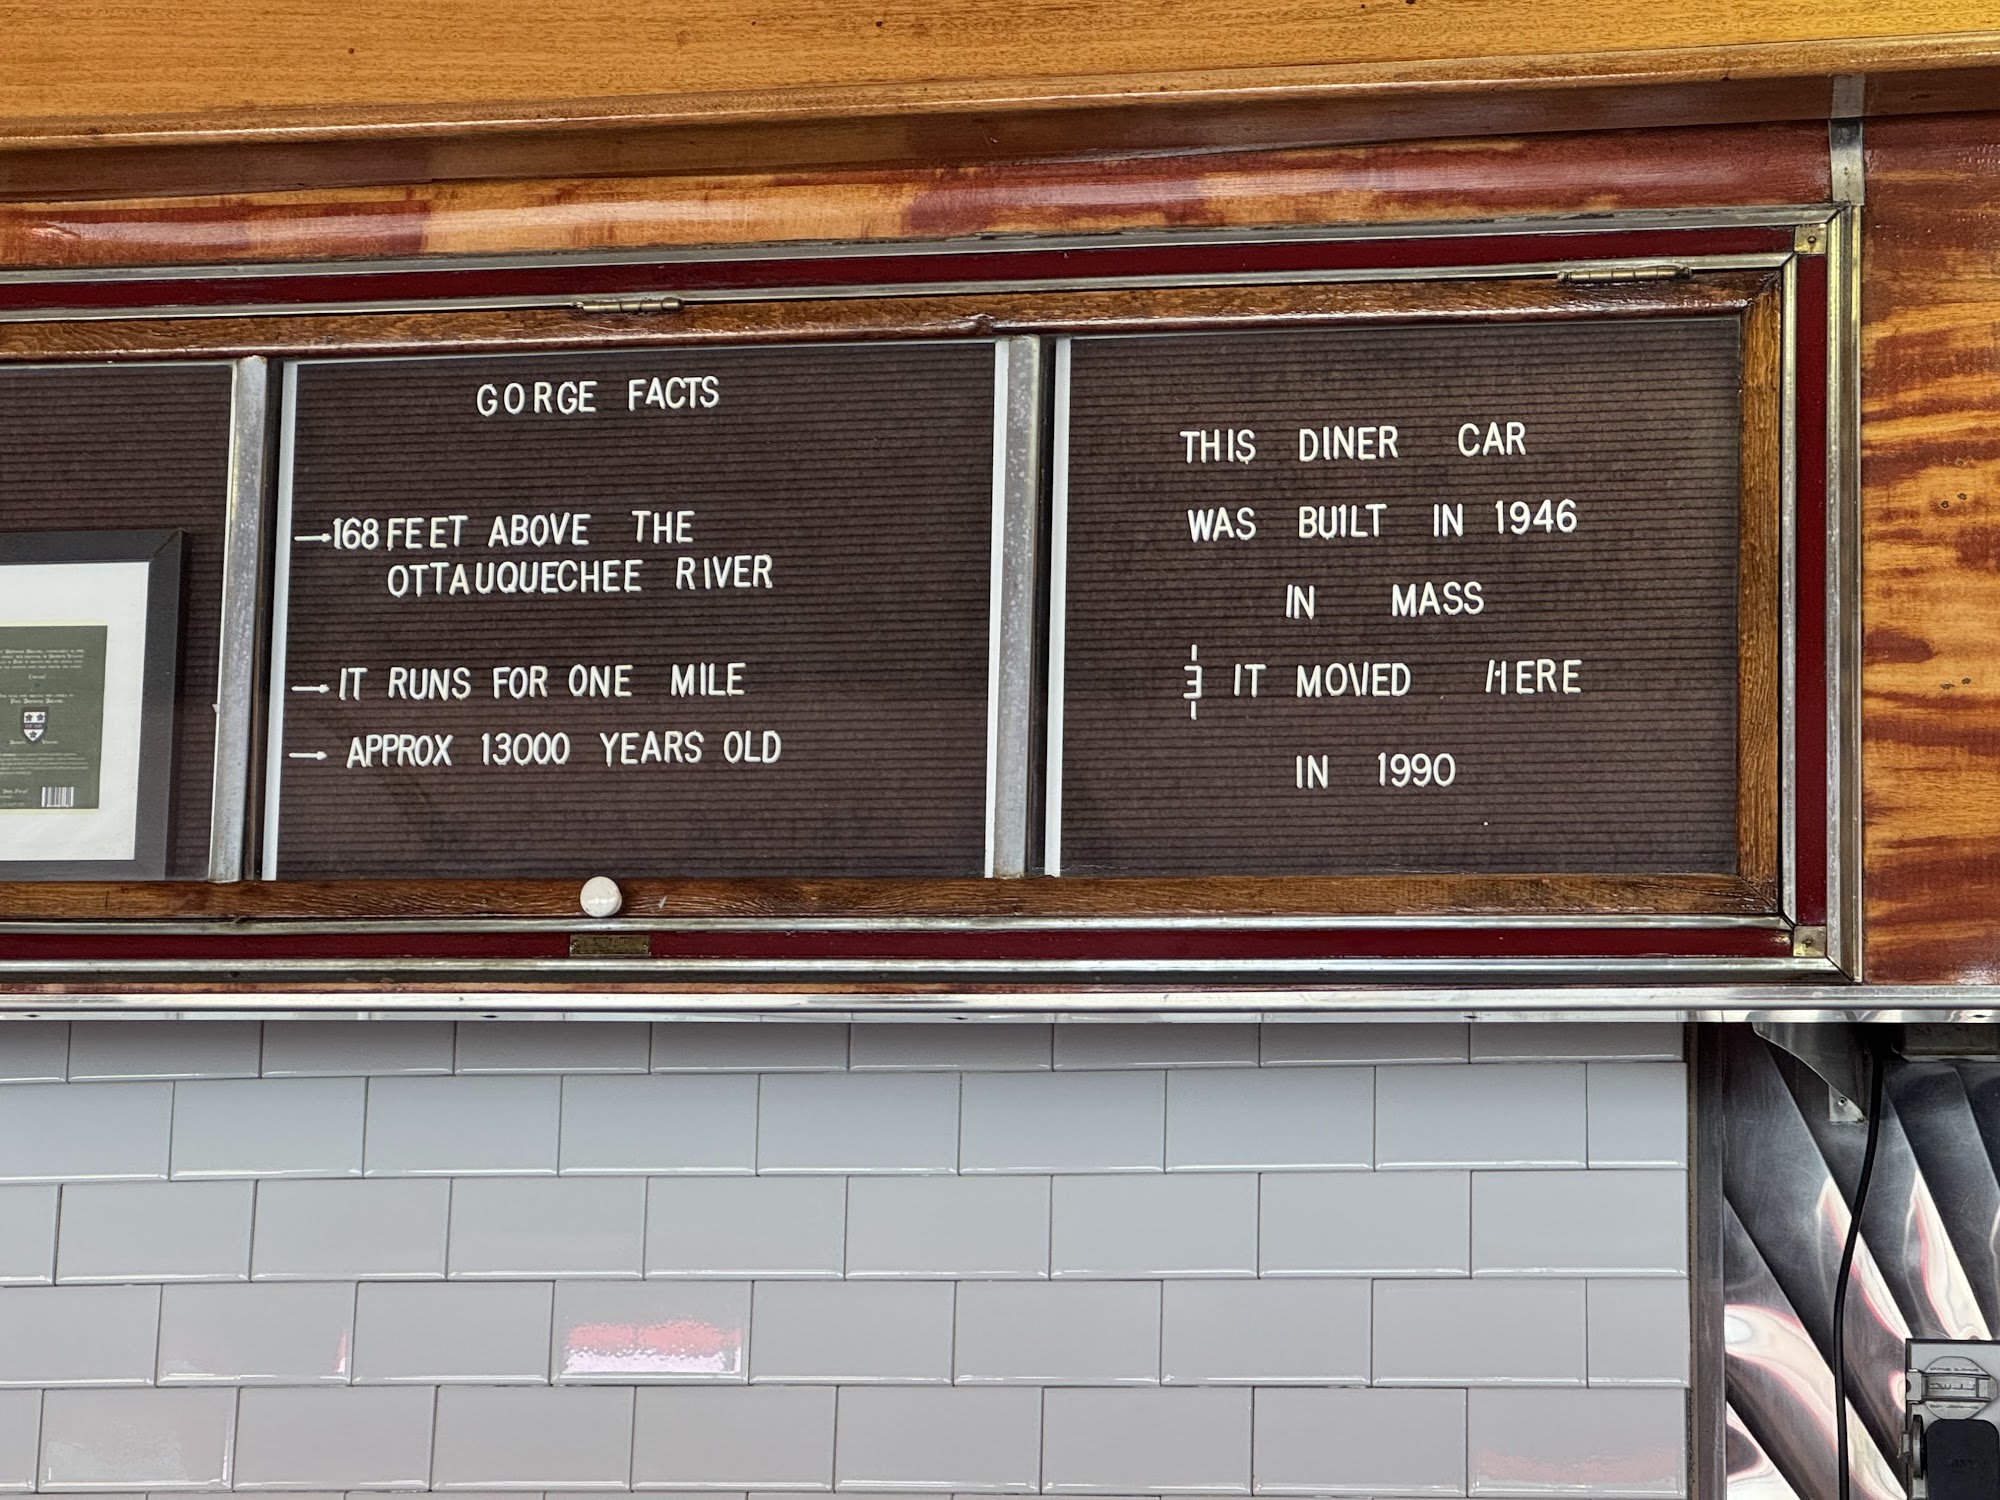 GORGE FACTS
→168 FEET ABOVE THE
OTTAUQUECHEE RIVER
→IT RUNS FOR ONE MILE
→ APPROX 13000 YEARS OLD
THIS DINER CAR
WAS BUILT IN 1946
IN MASS
& IT MOVED HERE
IN 1990